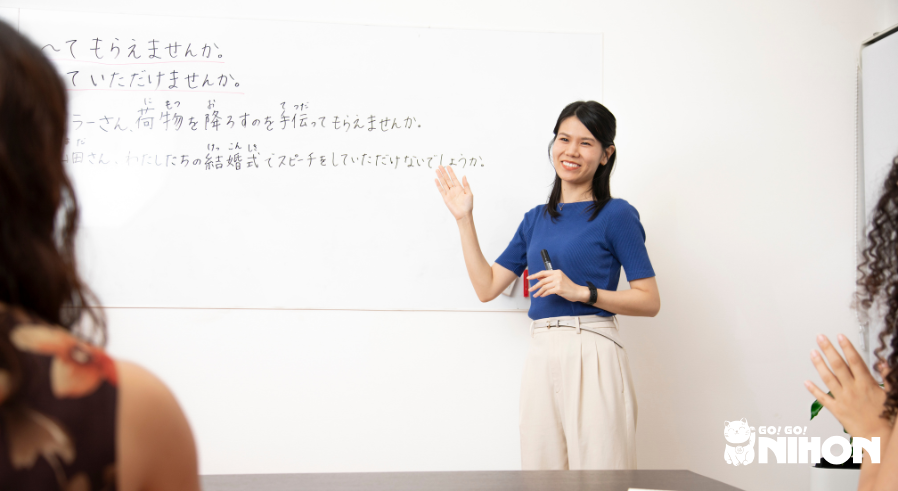 〜てもらえませんか。
ていただけませんか。
に もつ お てつだ
ラーさん、荷物を降ろすのを手伝ってもらえませんか。
だ けっ こん しき
田さん、わたしたちの結婚式でスピーチをしていただけないでしょうか。
GO! GO!
NIHON